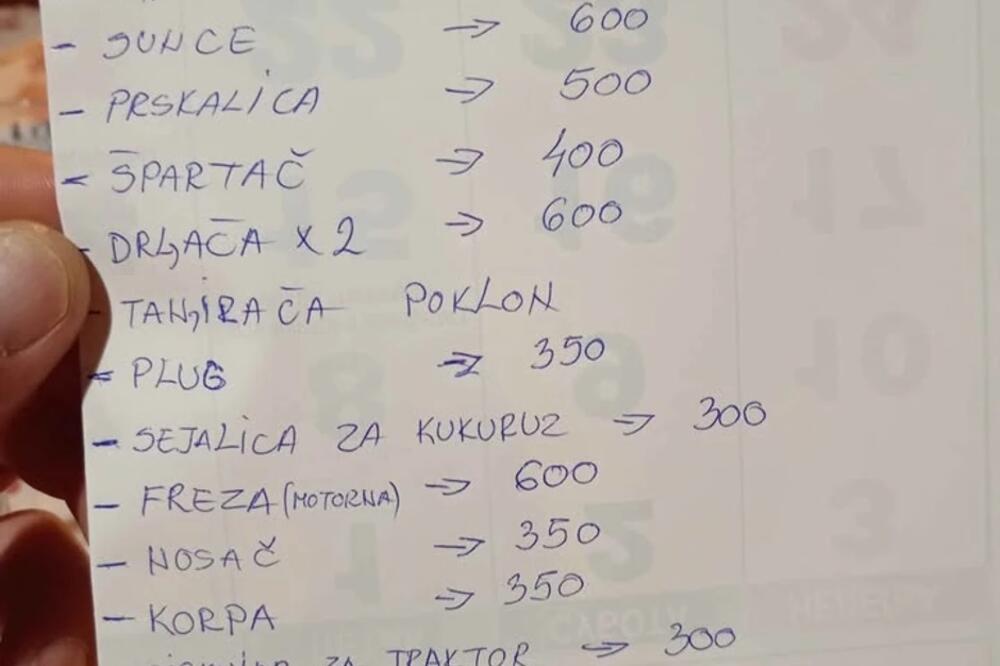 - SUNCE → 600
- PRSKALICA → 500
- ŠPARTAČ → 400
- DRLJAČA X 2 → 600
- TANJIRAČA POKLON
- PLUG → 350
- SEJALICA ZA KUKURUZ → 300
- FREZA (MOTORNA) → 600
- NOSAČ → 350
- KORPA → 350
ZA TRAKTOR → 300